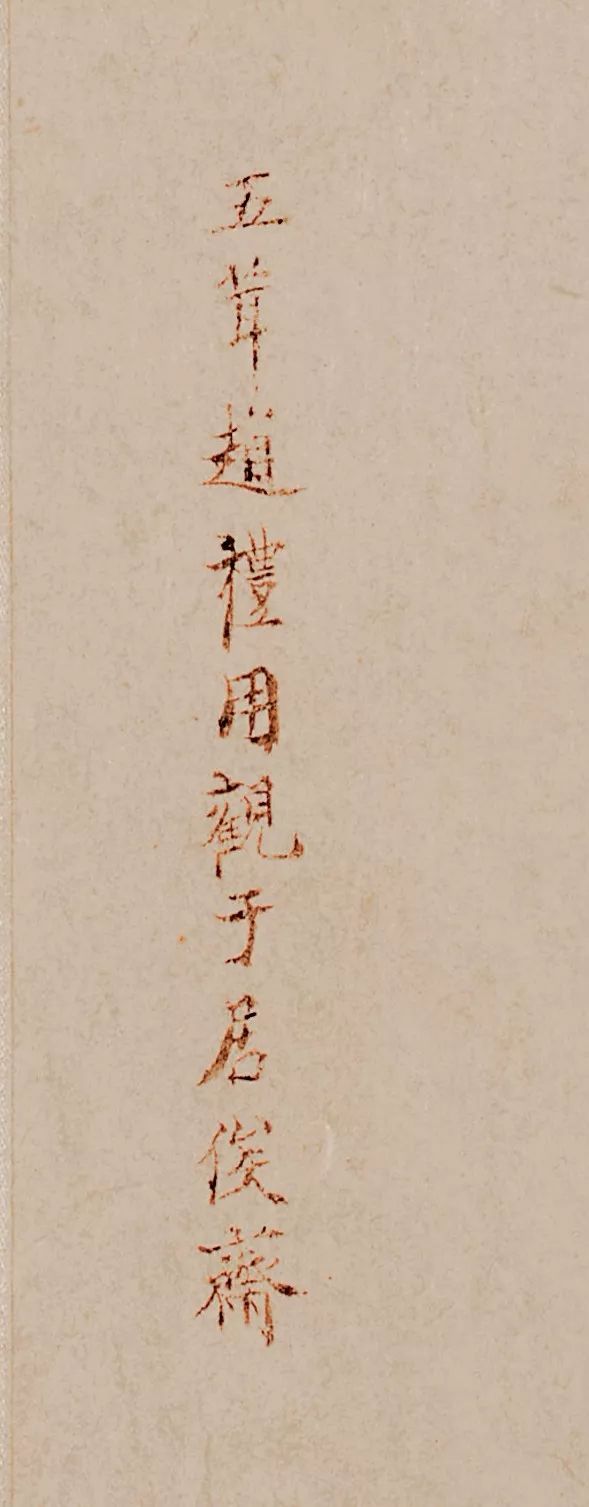 五茸趙禮用觀于居俟齋